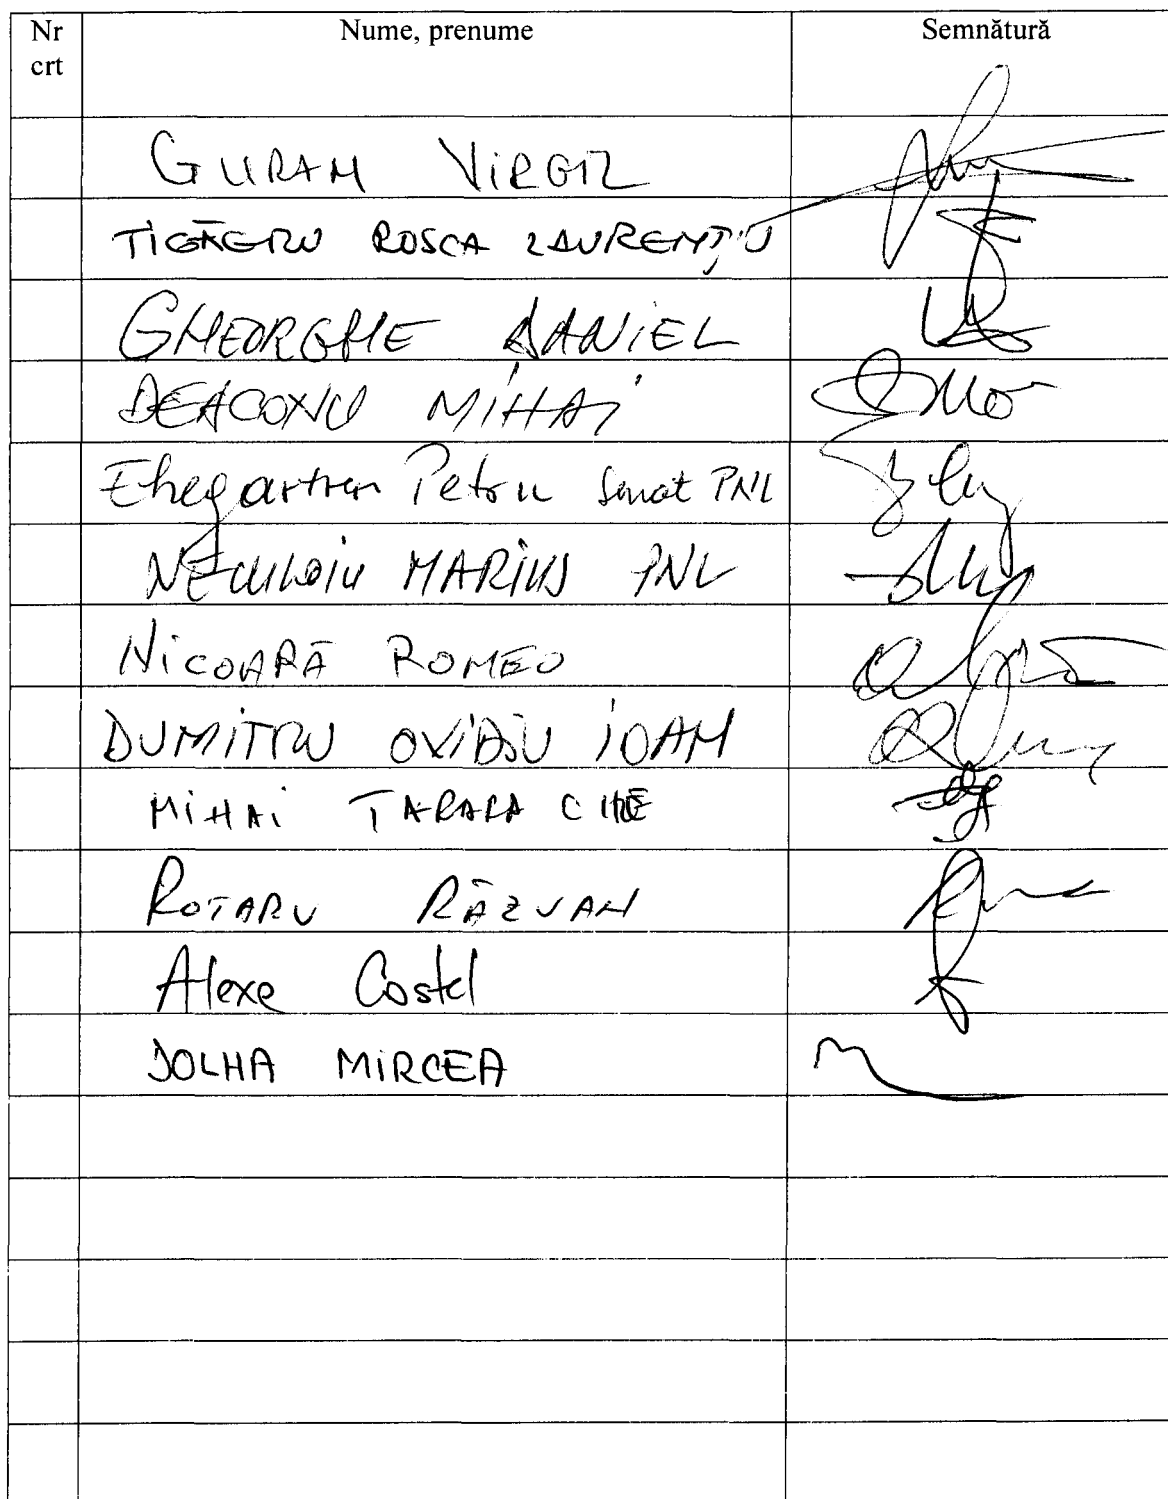 Nr crt Nume, prenume Semnătură
GURAN VIRGIL
TIGĂERU ROSCA LAURENȚIU
GHEORGHE DANIEL
DEACONU MIHAI
Ehegartner Petru Senat PNL
NECULOIU MARIUS PNL
NICOARĂ ROMEO
DUMITRU OVIDIU IOAN
MIHAI TARARA
ROTARU RĂZVAN
Alexe Costel
DOLHA MIRCEA